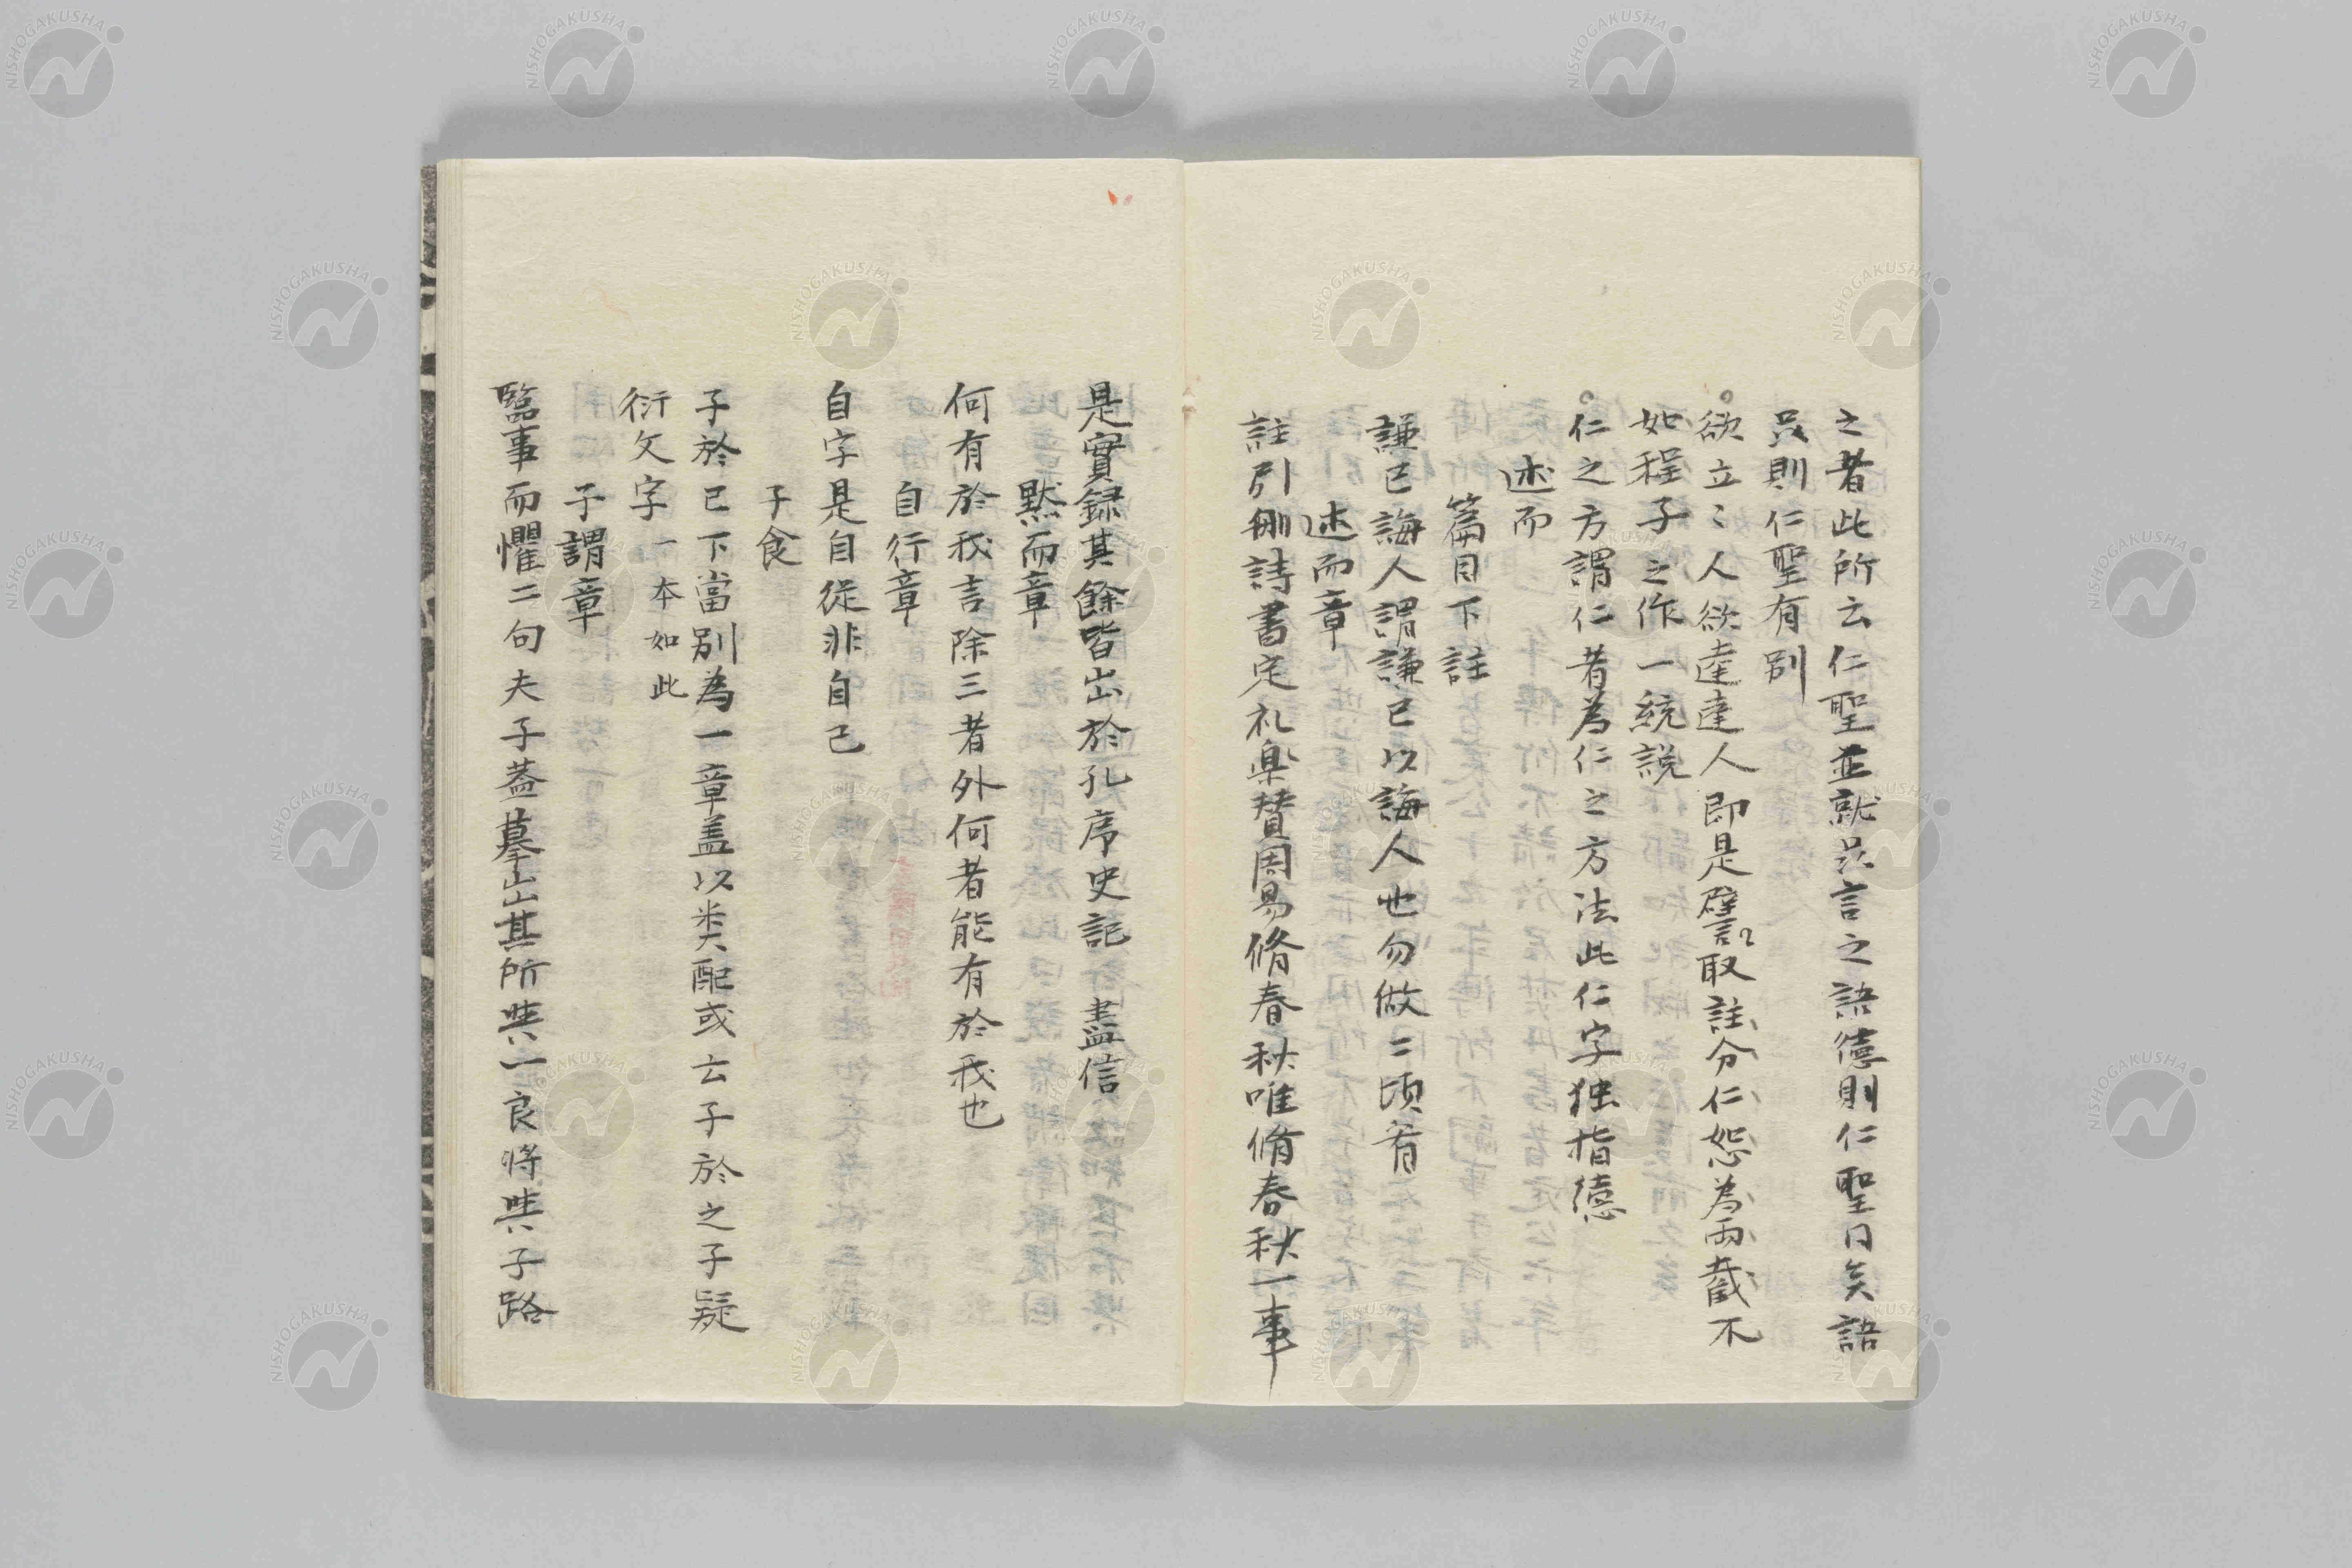 之者此所云仁聖並就民言之語德則仁聖同矣語
民則仁聖有別
。欲立〻人欲達達人即是譬取註分仁恕為兩截不
如程子之作一統説
。仁之方謂仁者為仁之方法此仁字独指德
述而
篇目下註
謙己誨人謂謙己以誨人也勿做二項看
述而章
註引刪詩書定礼楽賛周易脩春秋唯脩春秋一事
是實録其餘皆出於孔序史記 盡信
黙而章
何有於我言除三者外何者能有於我也
自行章
自字是自從非自己
子食
子於已下當別為一章盖以类配或云子於之子疑
衍文字一本如此
子謂章
臨事而懼二句夫子蓋摹出其所與一良将與子路
NISHOGAKUSHA